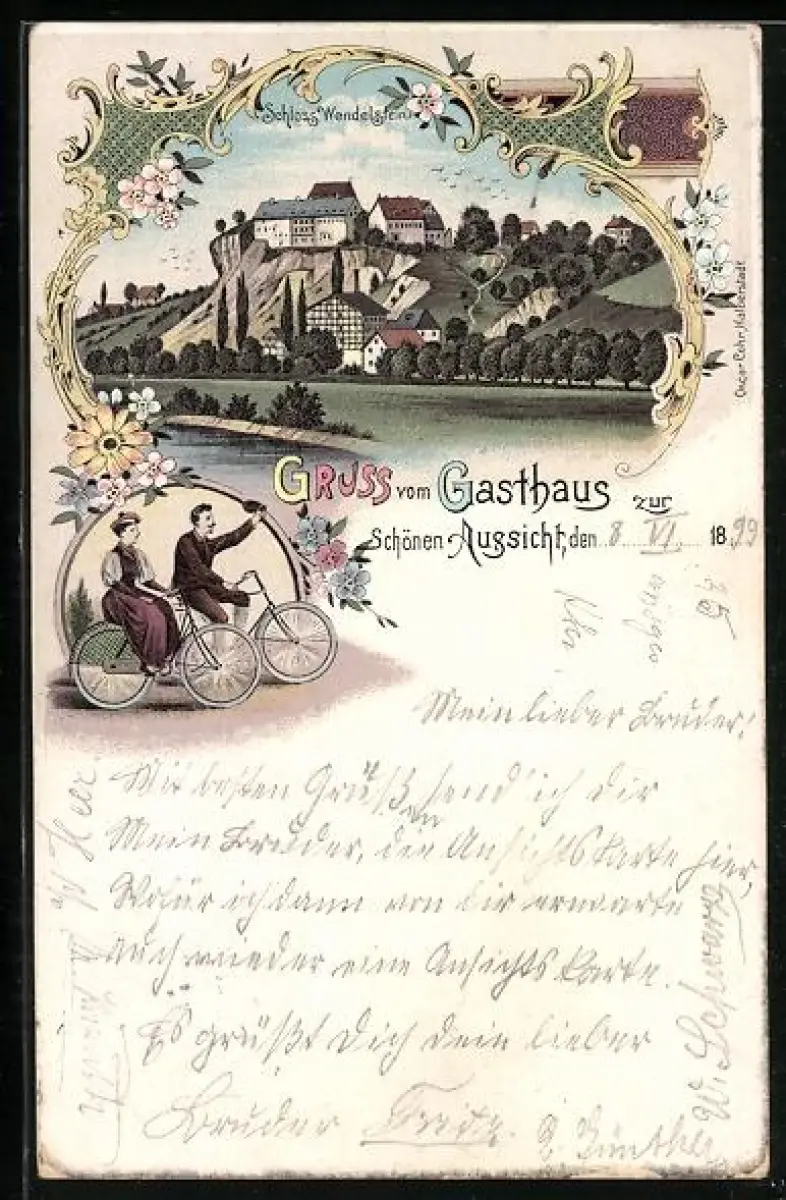 Schloss Wendelstein
Oscar Rohr, Halberstadt
Gruss vom Gasthaus zur
Schönen Aussicht, den 8. VI. 1899
Mein lieber Bruder!
Mit besten Grüß send' ich dir
Mein Bruder, die Ansichtskarte hier,
Wofür ich dann von dir erwarte
auch wieder eine Ansichtskarte.
Es grüßt Dich dein lieber
Bruder Fritz.
W. Schwarz